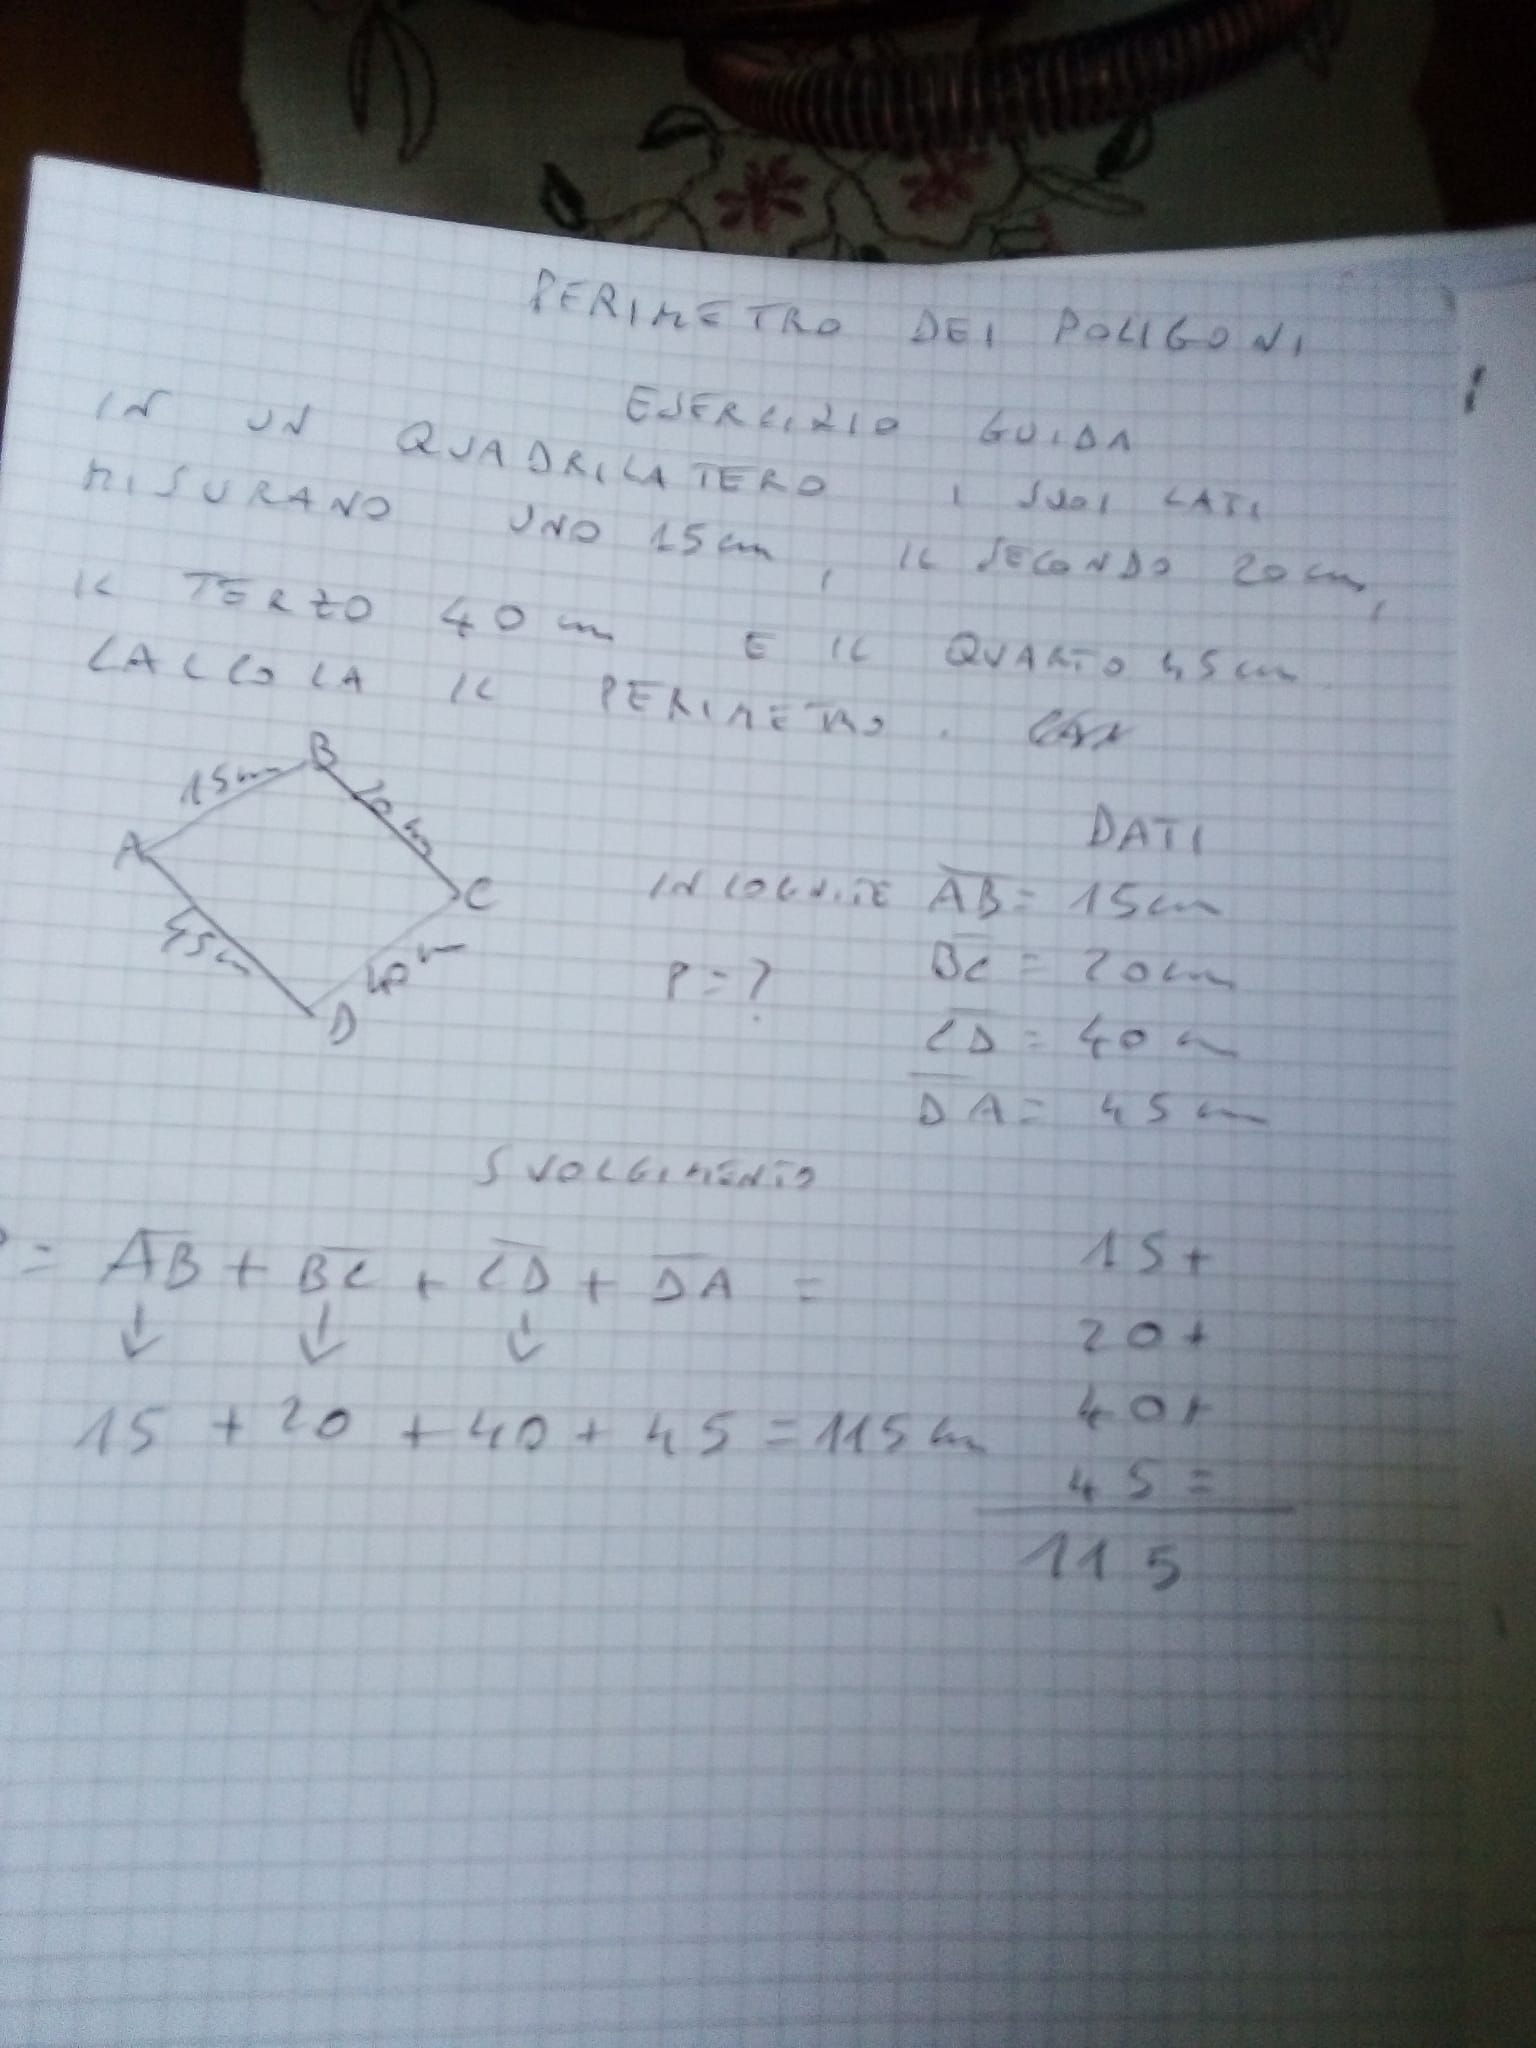 PERIMETRO DEI POLIGONI
ESERCIZIO GUIDA
IN UN QUADRILATERO I SUOI LATI
MISURANO UNO 15 cm, IL SECONDO 20 cm,
IL TERZO 40 cm E IL QUARTO 45 cm
CALCOLA IL PERIMETRO.
B
15 cm
20 cm
A
C
45 cm
40 cm
D
DATI
INCOGNITE AB = 15 cm
P = ? BC = 20 cm
CD = 40 cm
DA = 45 cm
SVOLGIMENTO
= AB + BC + CD + DA =
↓ ↓ ↓
15 + 20 + 40 + 45 = 115 cm
15+
20+
40+
45=
115